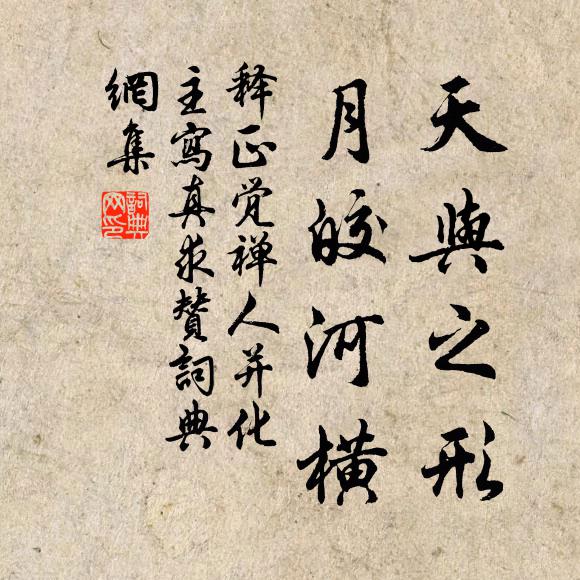 天與之形
月皎河橫
释正觉禅人并化
主寫真求贊詞典
網集
詞典網印